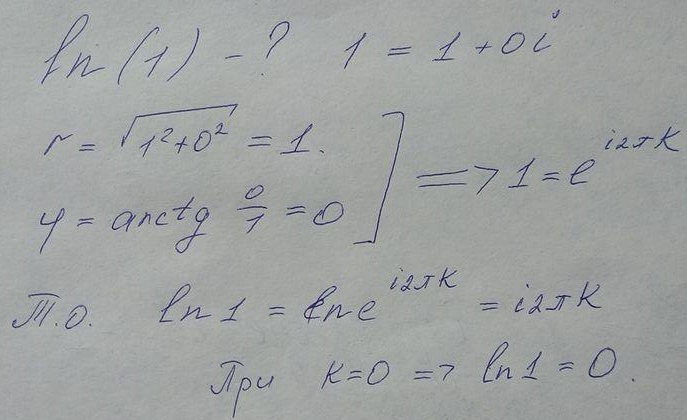 ln(1) - ? 1 = 1 + 0i
r = √(1²+0²) = 1.
φ = arctg 0/1 = 0 ] => 1 = e^{i2πK}
Т.О. ln 1 = ln e^{i2πK} = i2πK
При K=0 => ln 1 = 0.